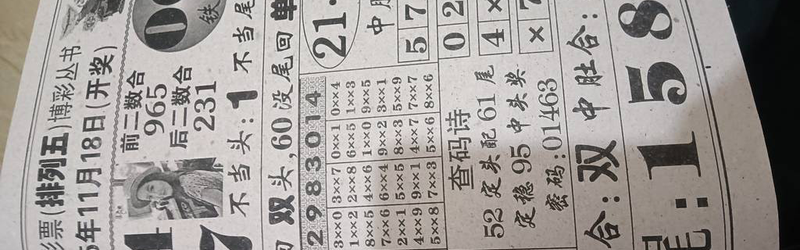 彩票(排列五)博彩丛书
年11月18日(开奖)
前二数合
965
后二数合
231
铁
不当头:1 不当尾
双头,60没尾回单
21.
2983014
3××0 3××7 0××1 0××4
1××2 2××8 6××5 1××3
8××5 4××6 1××0 9××5
7××6 6××4 9××2 3××1
2××1 5××5 8××3 5××9
4××9 9××1 4××7 7××7
5××8 7××3 5××6 8××6
中
5 7
0 2
4 ×
× 7
查码诗
52定头配61尾
定稳95中头奖
密码:01463
合:双 中肚合:
尾:158